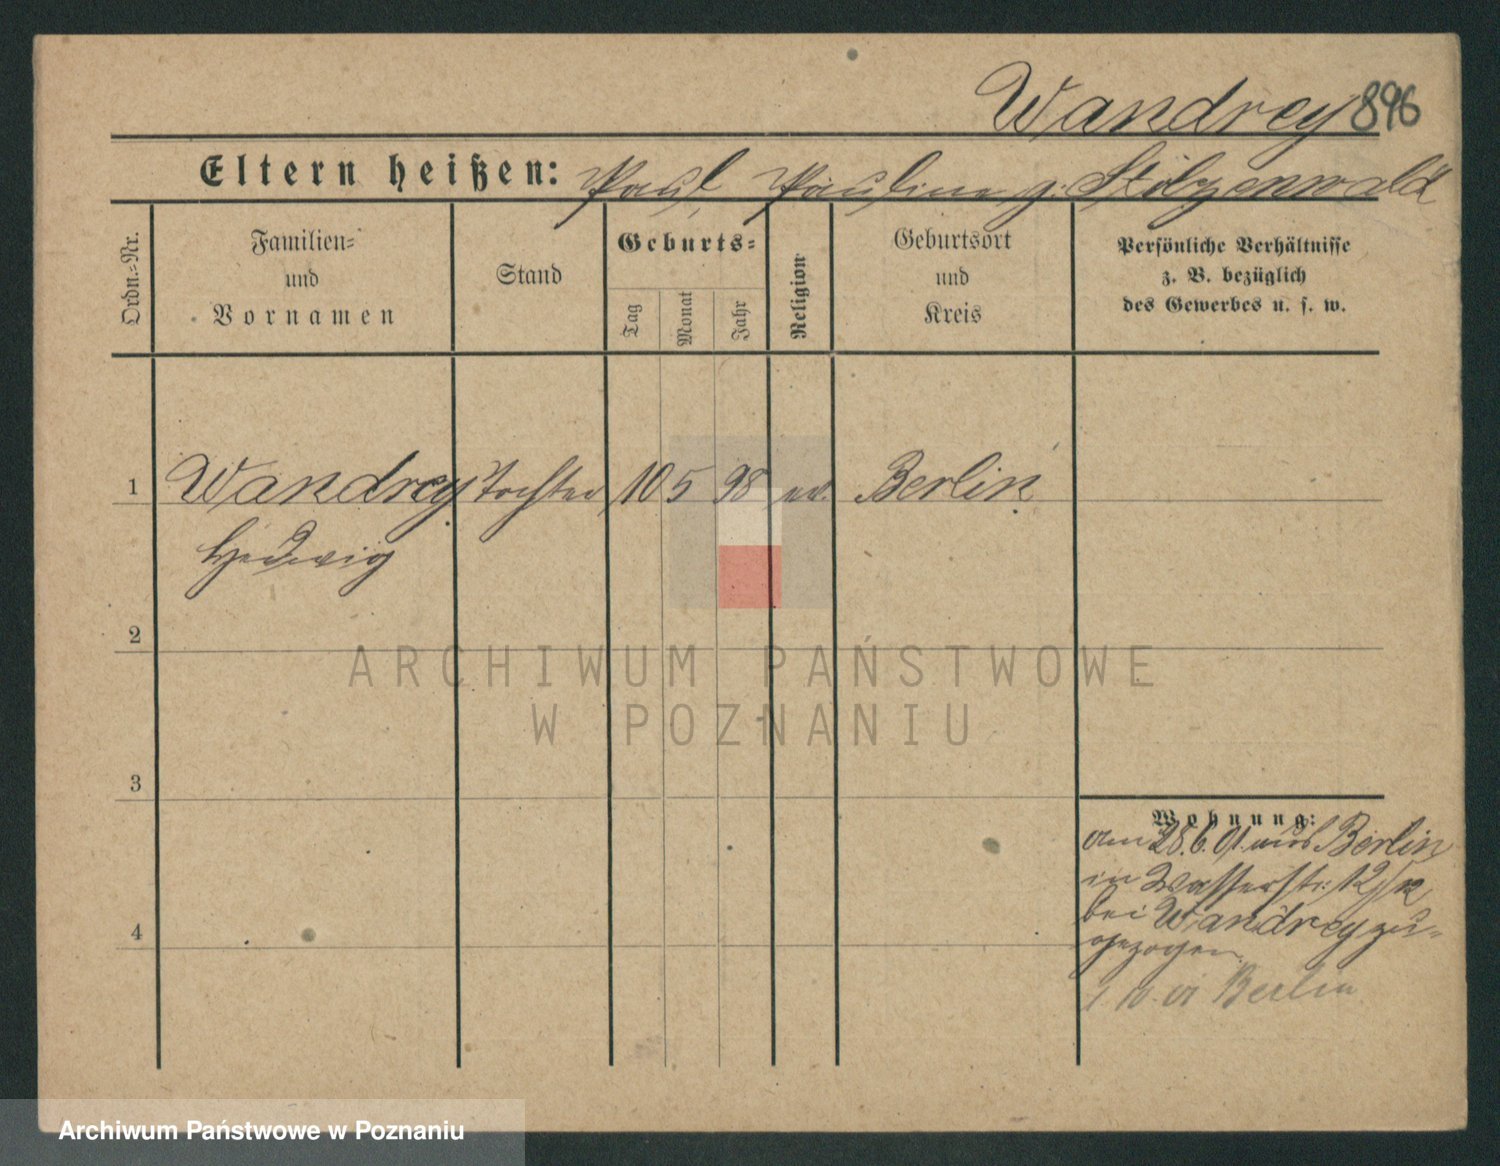 Wandrey 896
Eltern heißen: Paul, Pauline g. Stolzenwald
Ordn.=Nr.
Familien=
und
Vornamen
Stand
Geburts=
Tag
Monat
Jahr
Religion
Geburtsort
und
Kreis
Persönliche Verhältnisse
z. B. bezüglich
des Gewerbes u. s. w.
1 Wandrey Tochter 10 5 98 ev. Berlin
Hedwig
2
3
4
Wohnung:
am 28.6.01. aus Berlin
in Wasserstr: 12/
bei Wandrey zu=
gezogen.
1. 10. 01 Berlin
ARCHIWUM PAŃSTWOWE
W POZNANIU
Archiwum Państwowe w Poznaniu